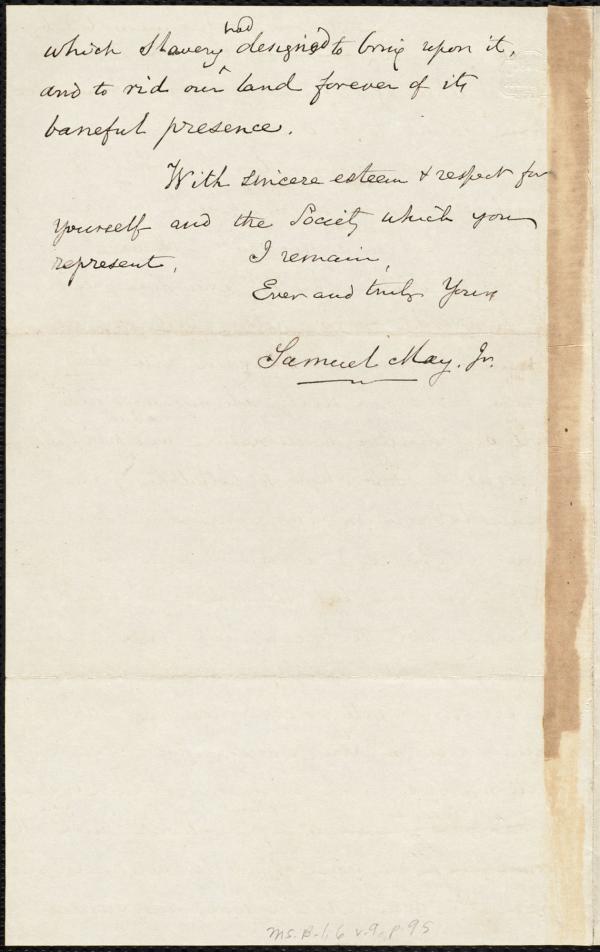 which Slavery had designed to bring upon it,
and to rid our land forever of its
baneful presence.
With sincere esteem & respect for
yourself and the Society which you
represent, I remain,
Ever and truly Yours
Samuel May, Jr.
MS. B. 1. 6 v. 9, p. 95